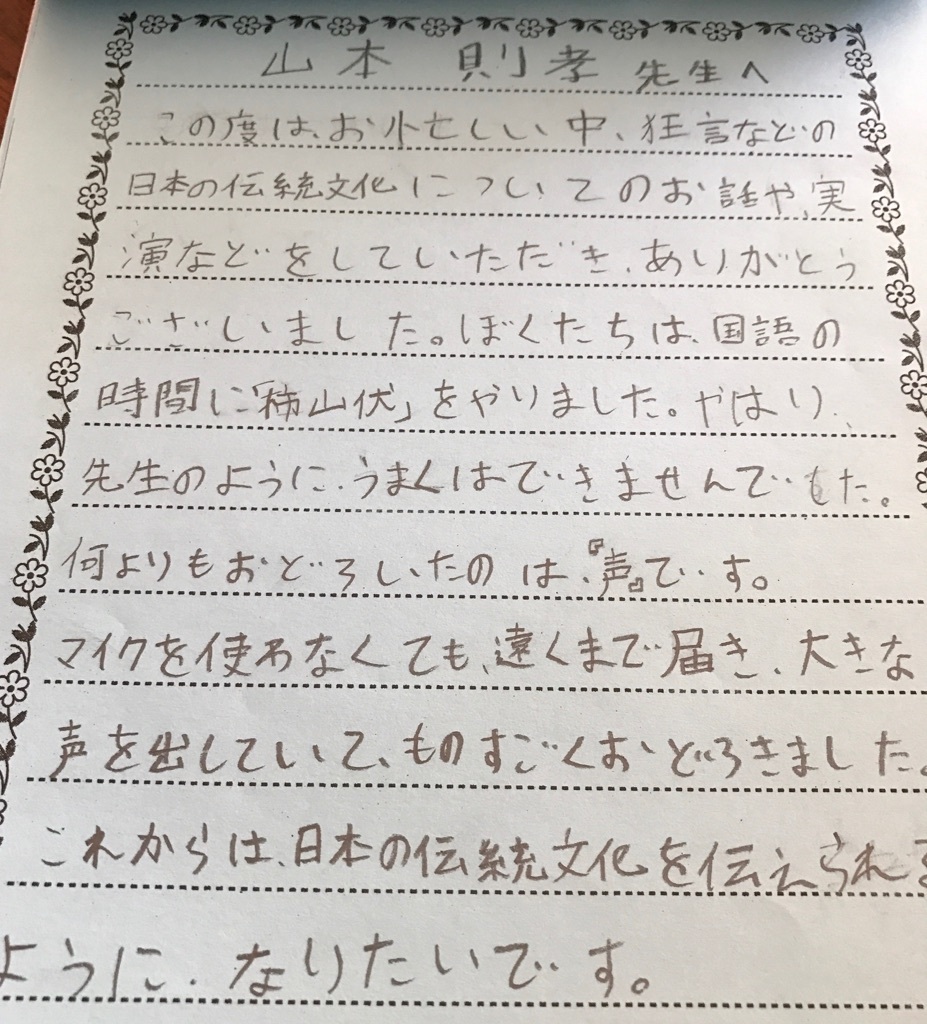 山本 則孝 先生へ
この度は、お忙しい中、狂言などの
日本の伝統文化についてのお話や、実
演などをしていただき、ありがとう
ございました。ぼくたちは、国語の
時間に「柿山伏」をやりました。やはり、
先生のように、うまくはできませんでした。
何よりもおどろいたのは、『声』です。
マイクを使わなくても、遠くまで届き、大きな
声を出していて、ものすごくおどろきました。
これからは、日本の伝統文化を伝えられる
ように、なりたいです。